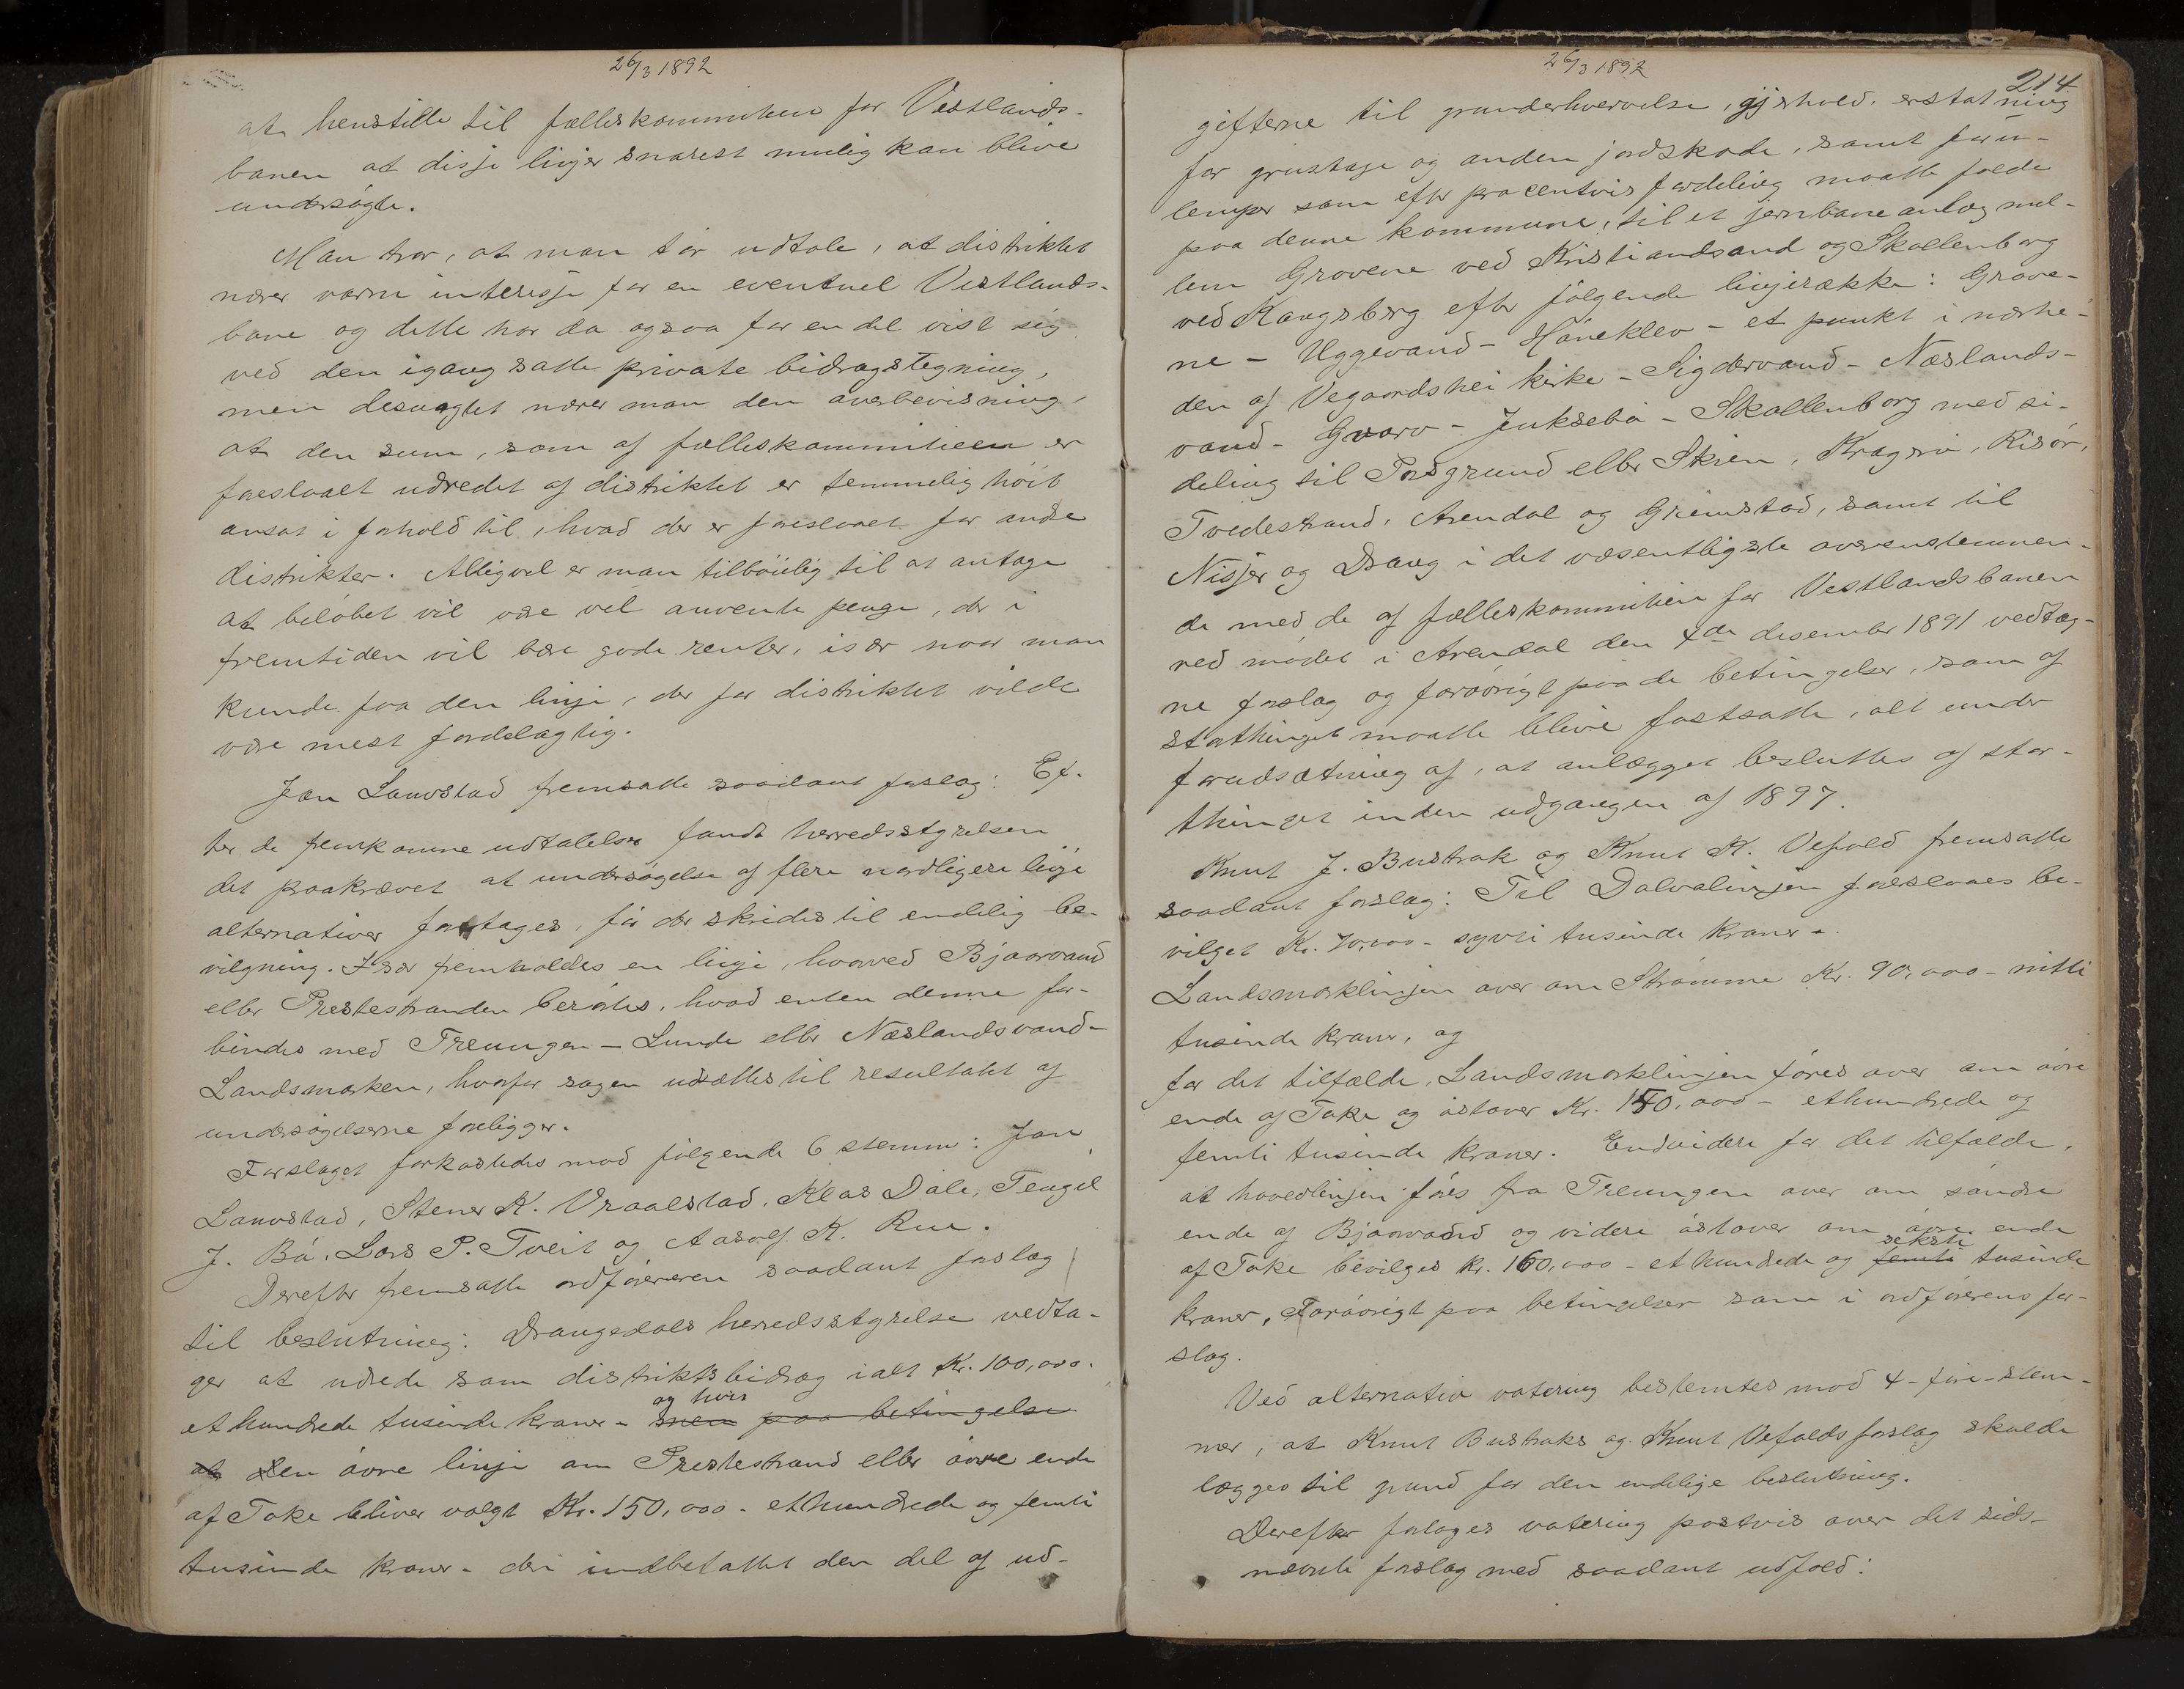 26/3 1892
at henstille til fælleskommiteen for Vestlands-
banen at disse linjer snarest mulig kan blive
undersøgte.
Man tror, at man tør udtale, at distriktet
nærer varm interesse for en eventuel Vestlands-
bane og dette har da ogsaa for en del vist sig
ved den igangsatte private bidragstegning,
men desuagtet nærer man den overbevisning,
at den sum, som af fælleskommitieen er
foreslaaet udredet af distriktet er temmelig høit
ansat i forhold til, hvad der er foreslaaet for andre
distrikter. Alligvel er man tilbøielig til at antage
at beløbet vil være vel anvente penge, der i
fremtiden vil bære gode renter, især naar man
kunde faa den linje, der for distriktet vilde
være mest fordelagtig.
Jon Lauvstad fremsatte saadant forslag: Ef-
ter de fremkomne udtalelser fandt herredsstyrelsen
det paakrævet at undersøgelse af flere nordligere linje
alternativer foretages, før der skrides til endelig be-
vilgning. Især fremholdes en linje, hvorved Bjaarvand
eller Prestestranden berøres, hvad enten denne for-
bindes med Treungen – Lunde eller Næslandsvand –
Landsmarken, hvorfor sagen udsættes til resultatet af
undersøgelserne foreligger.
Forslaget forkastedes mod følgende 6 stemmer: Jon
Lauvstad, Stener K. Vraalstad, Klas Dale, Tengel
J. Bø, Lars P. Tveit og Aasolf K. Rue.
Derefter fremsatte ordføreren saadant forslag
til beslutning: Drangedals herredsstyrelse vedta-
ger at udrede som distriktsbidrag ialt Kr. 100,000.
og hvis
et hundrede tusinde kroner – men paa betingelse
at den øvre linje om Prestestrand eller øvre ende
af Toke bliver valgt Kr. 150,000 – ethundrede og femti
tusinde kroner – deri indbefattet den del af ud-
26/3 1892
214
gifterne til grunderhvervelse, gjerhold, erstatning
for grustage og anden jordskade, samt for u-
lemper som efter procentvis fordeling maatte falde
paa denne kommune, til et jernbaneanlæg mel-
lem Grovene ved Kristiandsand og Skollenborg
ved Kongsberg efter følgende linjerække: Grove-
ne – Uggevand – Høneklev – et punkt i nærhe-
den af Vegaardshei kirke – Sigdervand – Næslands-
vand – Gvarv – Juksebø – Skollenborg med si-
deling til Porsgrund eller Skien, Kragerø, Risør,
Tvedestrand, Arendal og Grimstad, samt til
Nisser og Drang i det væsentligste overenstemmen-
de med de af fælleskommitien for Vestlandsbanen
ved mødet i Arendal den 4de desember 1891 vedtag-
ne forslag og forøvrigt paa de betingelser, som af
storthinget maatte blive fastsatte, alt under
forudsætning af, at anlægget besluttes af stor-
thinget inden udgangen af 1897.
Knut J. Bustrak og Knut K. Vefald fremsatte
saadant forslag: Til Dalvalinjen foreslaaes be-
vilget Kr. 70,000 – sytti tusinde kroner –.
Landsmarklinjen over om Strømme Kr. 90,000 – nitti
tusinde kroner, og
for det tilfælde, Landsmarklinjen føres over om øvre
ende af Toke og østover Kr. 150,000 – ethundrede og
femti tusinde kroner. Endvidere for det tilfælde,
at hovedlinjen føres fra Treungen over om søndre
ende af Bjaarvand og videre østover om øvre ende
seksti
af Toke bevilges Kr. 160,000 – et hundrede og femti tusinde
kroner, Forøvrigt paa betingelser som i ordførerens for-
slag.
Ved alternativ votering bestemtes mod 4 – fire – stem-
mer, at Knut Bustraks og Knut Vefalds forslag skulde
lægges til grund for den endelige beslutning.
Derefter foretoges votering postvis over det sids-
nævnte forslag med saadant udfald: